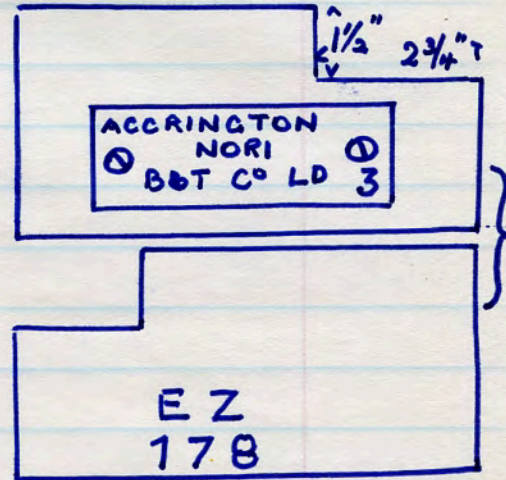 1½"
2¾"
ACCRINGTON
NORI
B&T Cº LD 3
EZ
178